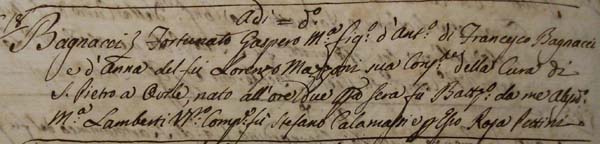 Adi = d.º
Bagnacci } Fortunato Gaspero M.ª fig.º d'Ant.º di Francesco Bagnacci
e d'Anna del fù Lorenzo Mazzoni sua Cons.te della Cura di
S. Pietro a nato all'ore due sera fù Batt.º da me
M.ª Lamberti Comp.e fù Stefano Calamati e Rosa Pettini